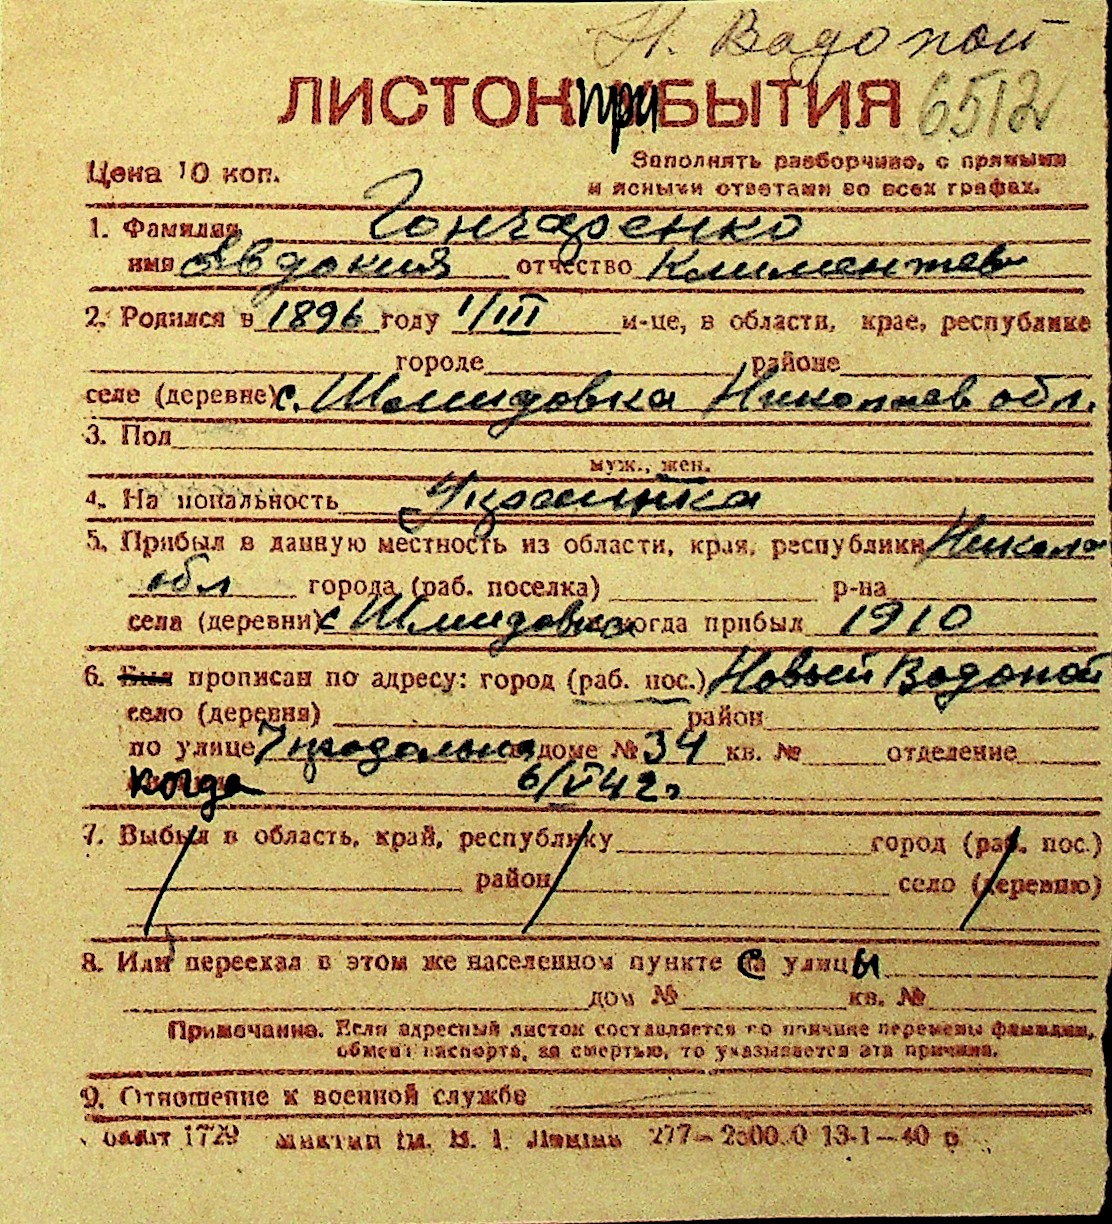 Н. Водопой
ЛИСТОК ПРИБЫТИЯ 6512
Цена 10 коп.
Заполнять разборчиво, с прямыми
и ясными ответами во всех графах.
1. Фамилия Гончаренко
имя Явдокия отчество Климентев
2. Родился в 1896 году 1/III м-це, в области, крае, республике
городе районе
селе (деревне) с. Шмидовка Николаев обл.
3. Пол
муж., жен.
4. Национальность Украинка
5. Прибыл в данную местность из области, края, республики Никола
обл города (раб. поселка) р-на
села (деревни) с Шмидовка когда прибыл 1910
6. Был прописан по адресу: город (раб. пос.) Новый Водопой
село (деревня) район
по улице 7 продольна доме № 34 кв. № отделение
когда 6/VI 42 г
7. Выбыл в область, край, республику город (раб. пос.)
район село (деревню)
8. Или переехал в этом же населенном пункте с улицы
дом № кв. №
Примечание. Если адресный листок составляется по причине перемены фамилии,
обмена паспорта, за смертью, то указывается эта причина.
9. Отношение к военной службе
1729 им. В. И. Ленина 277— 13-1—40 р.